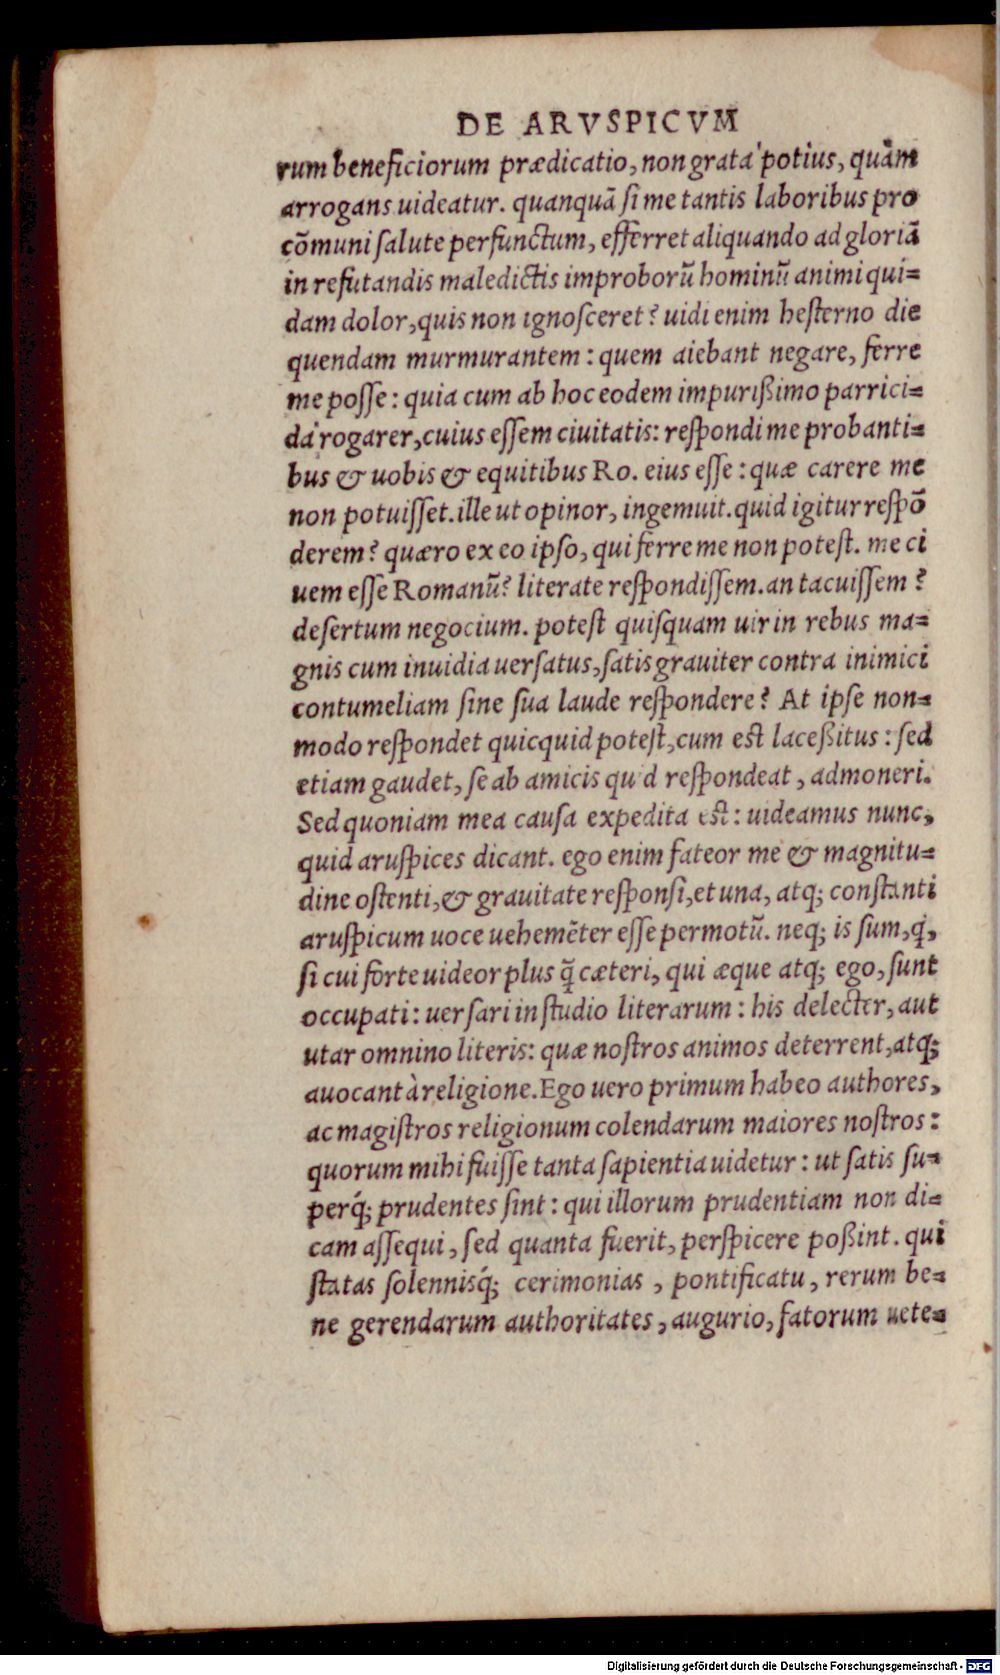 DE ARVSPICVM
rum beneficiorum prædicatio, non grata' potius, quàm
arrogans uideatur. quanquā si me tantis laboribus pro
cōmuni salute perfunctum, efferret aliquando ad gloriā
in refutandis maledictis improborū hominū animi qui=
dam dolor, quis non ignosceret? uidi enim hesterno die
quendam murmurantem: quem aiebant negare, ferre
me posse: quia cum ab hoc eodem impurißimo parrici=
da' rogarer, cuius essem ciuitatis: respondi me probanti=
bus & uobis & equitibus Ro. eius esse: quæ carere me
non potuisset. ille ut opinor, ingemuit. quid igitur respō
derem? quæro ex eo ipso, qui ferre me non potest. me ci
uem esse Romanū? literate respondissem. an tacuissem?
desertum negocium. potest quisquam uir in rebus ma=
gnis cum inuidia uersatus, satis grauiter contra inimici
contumeliam sine sua laude respondere? At ipse non=
modo respondet quicquid potest, cum est laceßitus: sed
etiam gaudet, se ab amicis qu d respondeat, admoneri.
Sed quoniam mea causa expedita est: uideamus nunc,
quid aruspices dicant. ego enim fateor me & magnitu=
dine ostenti, & grauitate responsi, et una, atq; constanti
aruspicum uoce uehemēter esse permotū. neq; is sum, q,
si cui forte uideor plus q̄ cæteri, qui æque atq; ego, sunt
occupati: uersari in studio literarum: his delecter, aut
utar omnino literis: quæ nostros animos deterrent, atq;
auocant à religione. Ego uero primum habeo authores,
ac magistros religionum colendarum maiores nostros:
quorum mihi fuisse tanta sapientia uidetur: ut satis su=
perq́; prudentes sint: qui illorum prudentiam non di=
cam assequi, sed quanta fuerit, perspicere poßint. qui
statas solennisq́; cerimonias, pontificatu, rerum be=
ne gerendarum authoritates, augurio, fatorum uete=
Digitalisierung gefördert durch die Deutsche Forschungsgemeinschaft - DFG